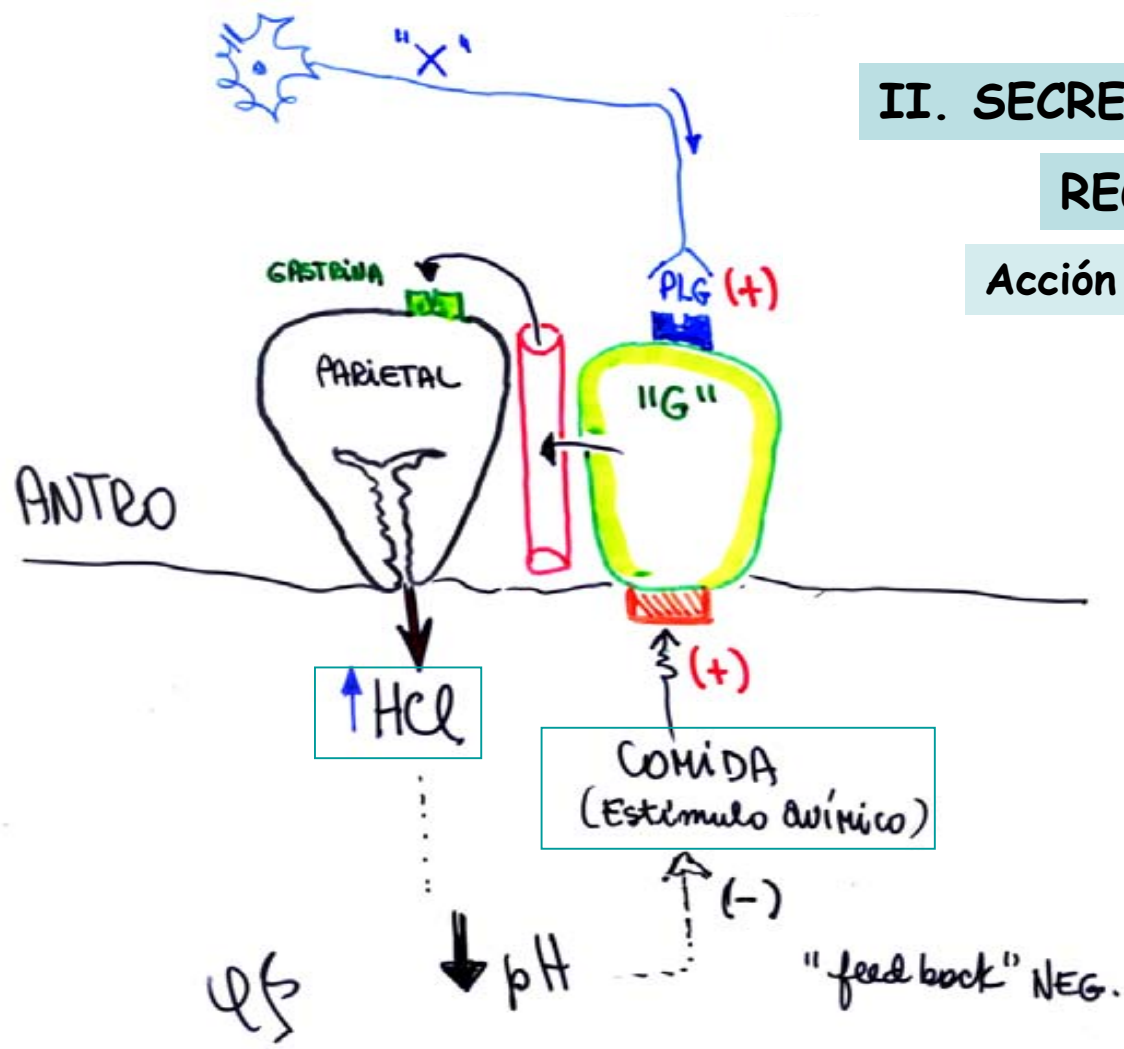 "X"
II. SECRE
REG
Acción
GASTRINA
PLG (+)
PARIETAL
"G"
ANTRO
HCl
(+)
COMIDA
(Estímulo químico)
(-)
pH
"feed back" NEG.